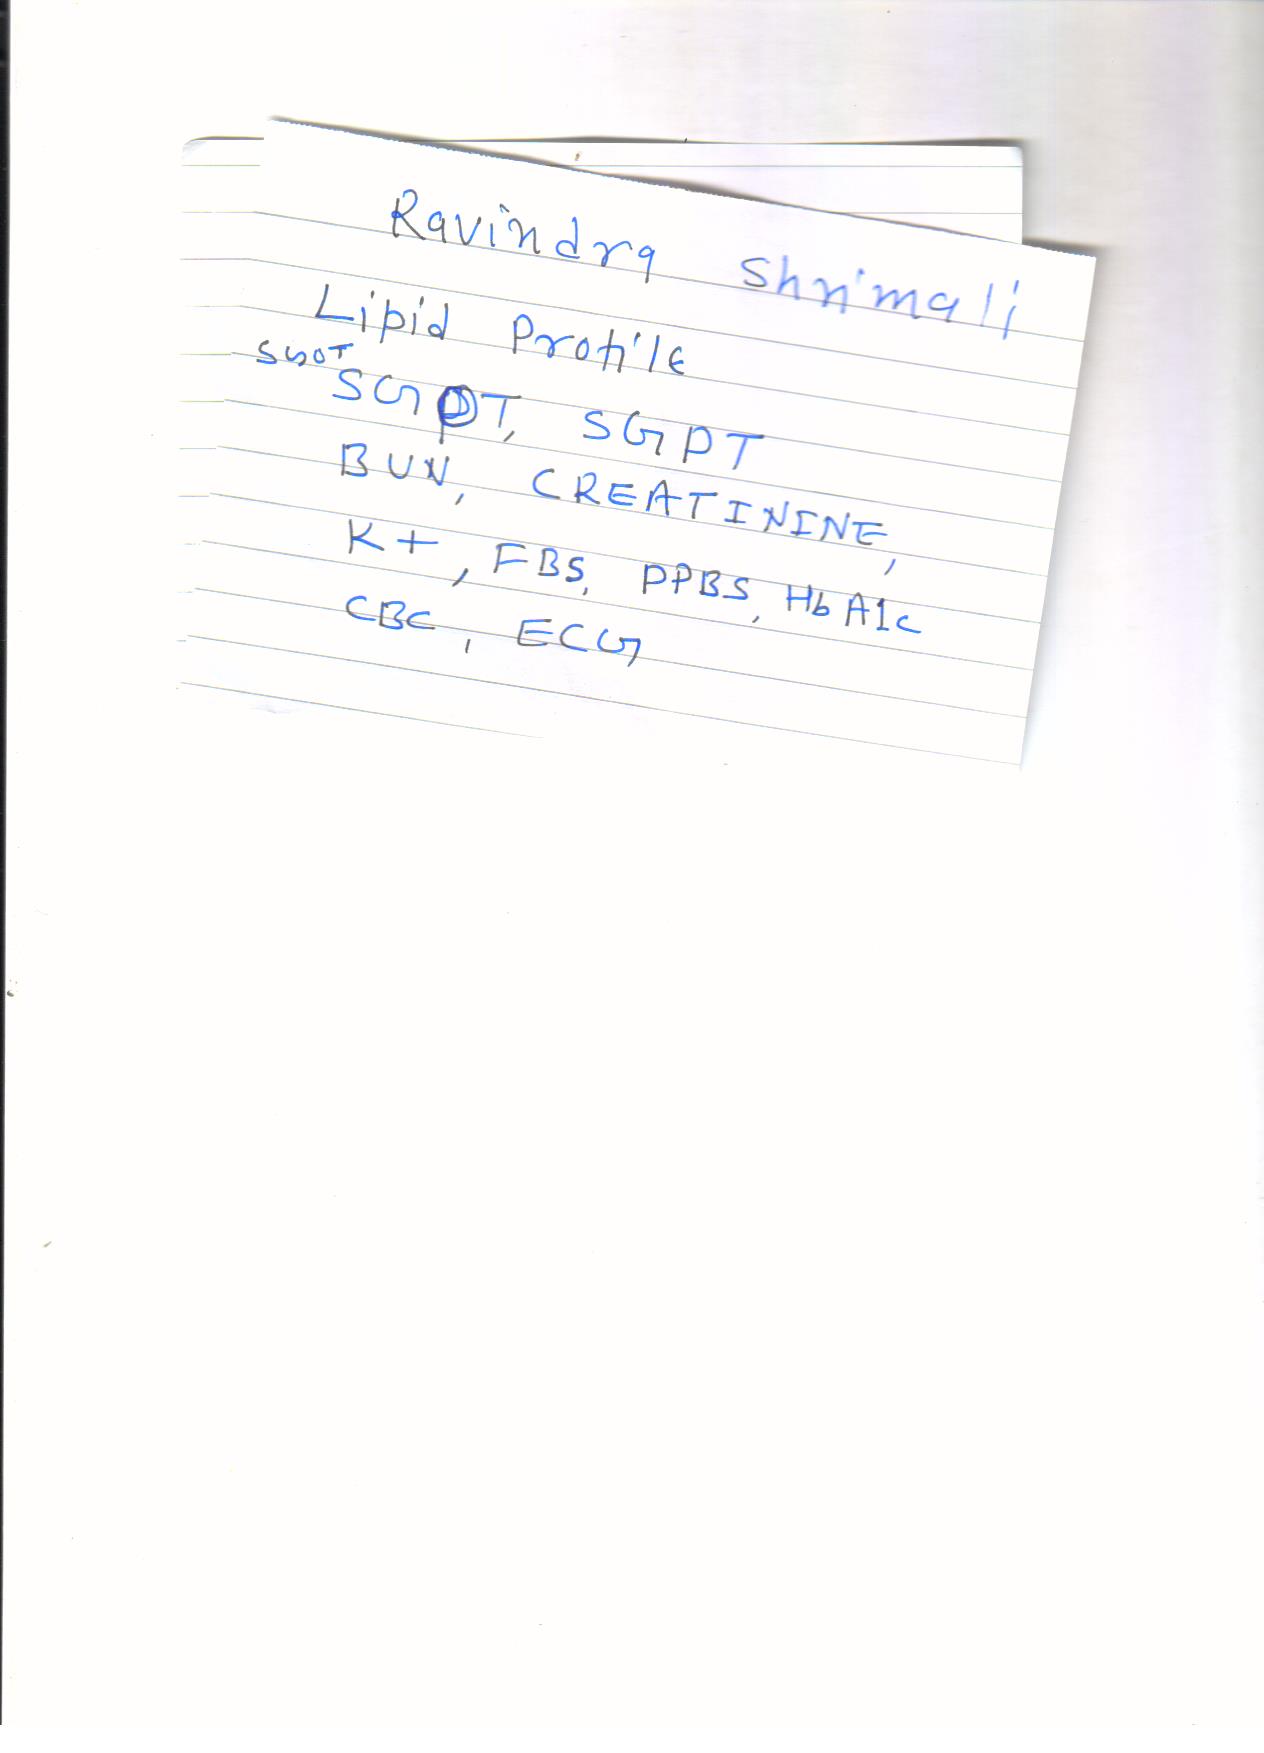 Ravindra Shrimali
Lipid Profile
SGOT
SGOT, SGPT
BUN, CREATININE,
K+, FBS, PPBS, HbA1c
CBC, ECG